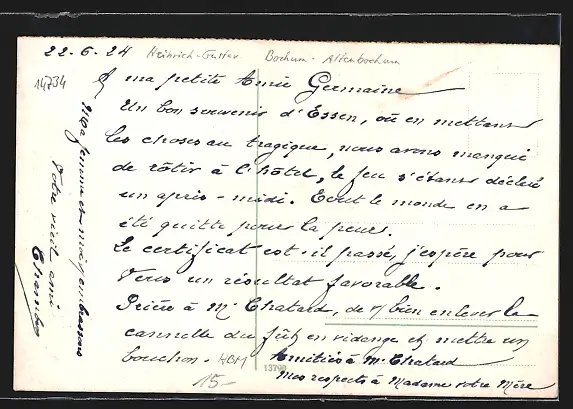 22-6-24 Heinrich-Gustav Bochum - Altenbochum
14734
A ma petite Amie Germaine
Un bon souvenir d'Essen, où en mettant
les choses au tragique, nous avons manqué
de rôtir à l'hôtel, le feu s'étant déclaré
un après-midi. Tout le monde en a
été quitte pour la peur.
Le certificat est-il passé, j'espère pour
vous un résultat favorable.
Prière à Mr Chatard, de bien enlever la
cannelle du fût en vidange et mettre un
bouchon. HBM Amitiés à Mr Chatard
13790
15.- Mes respects à Madame votre Mère
Ma femme et moi embrassons
Votre vieil ami